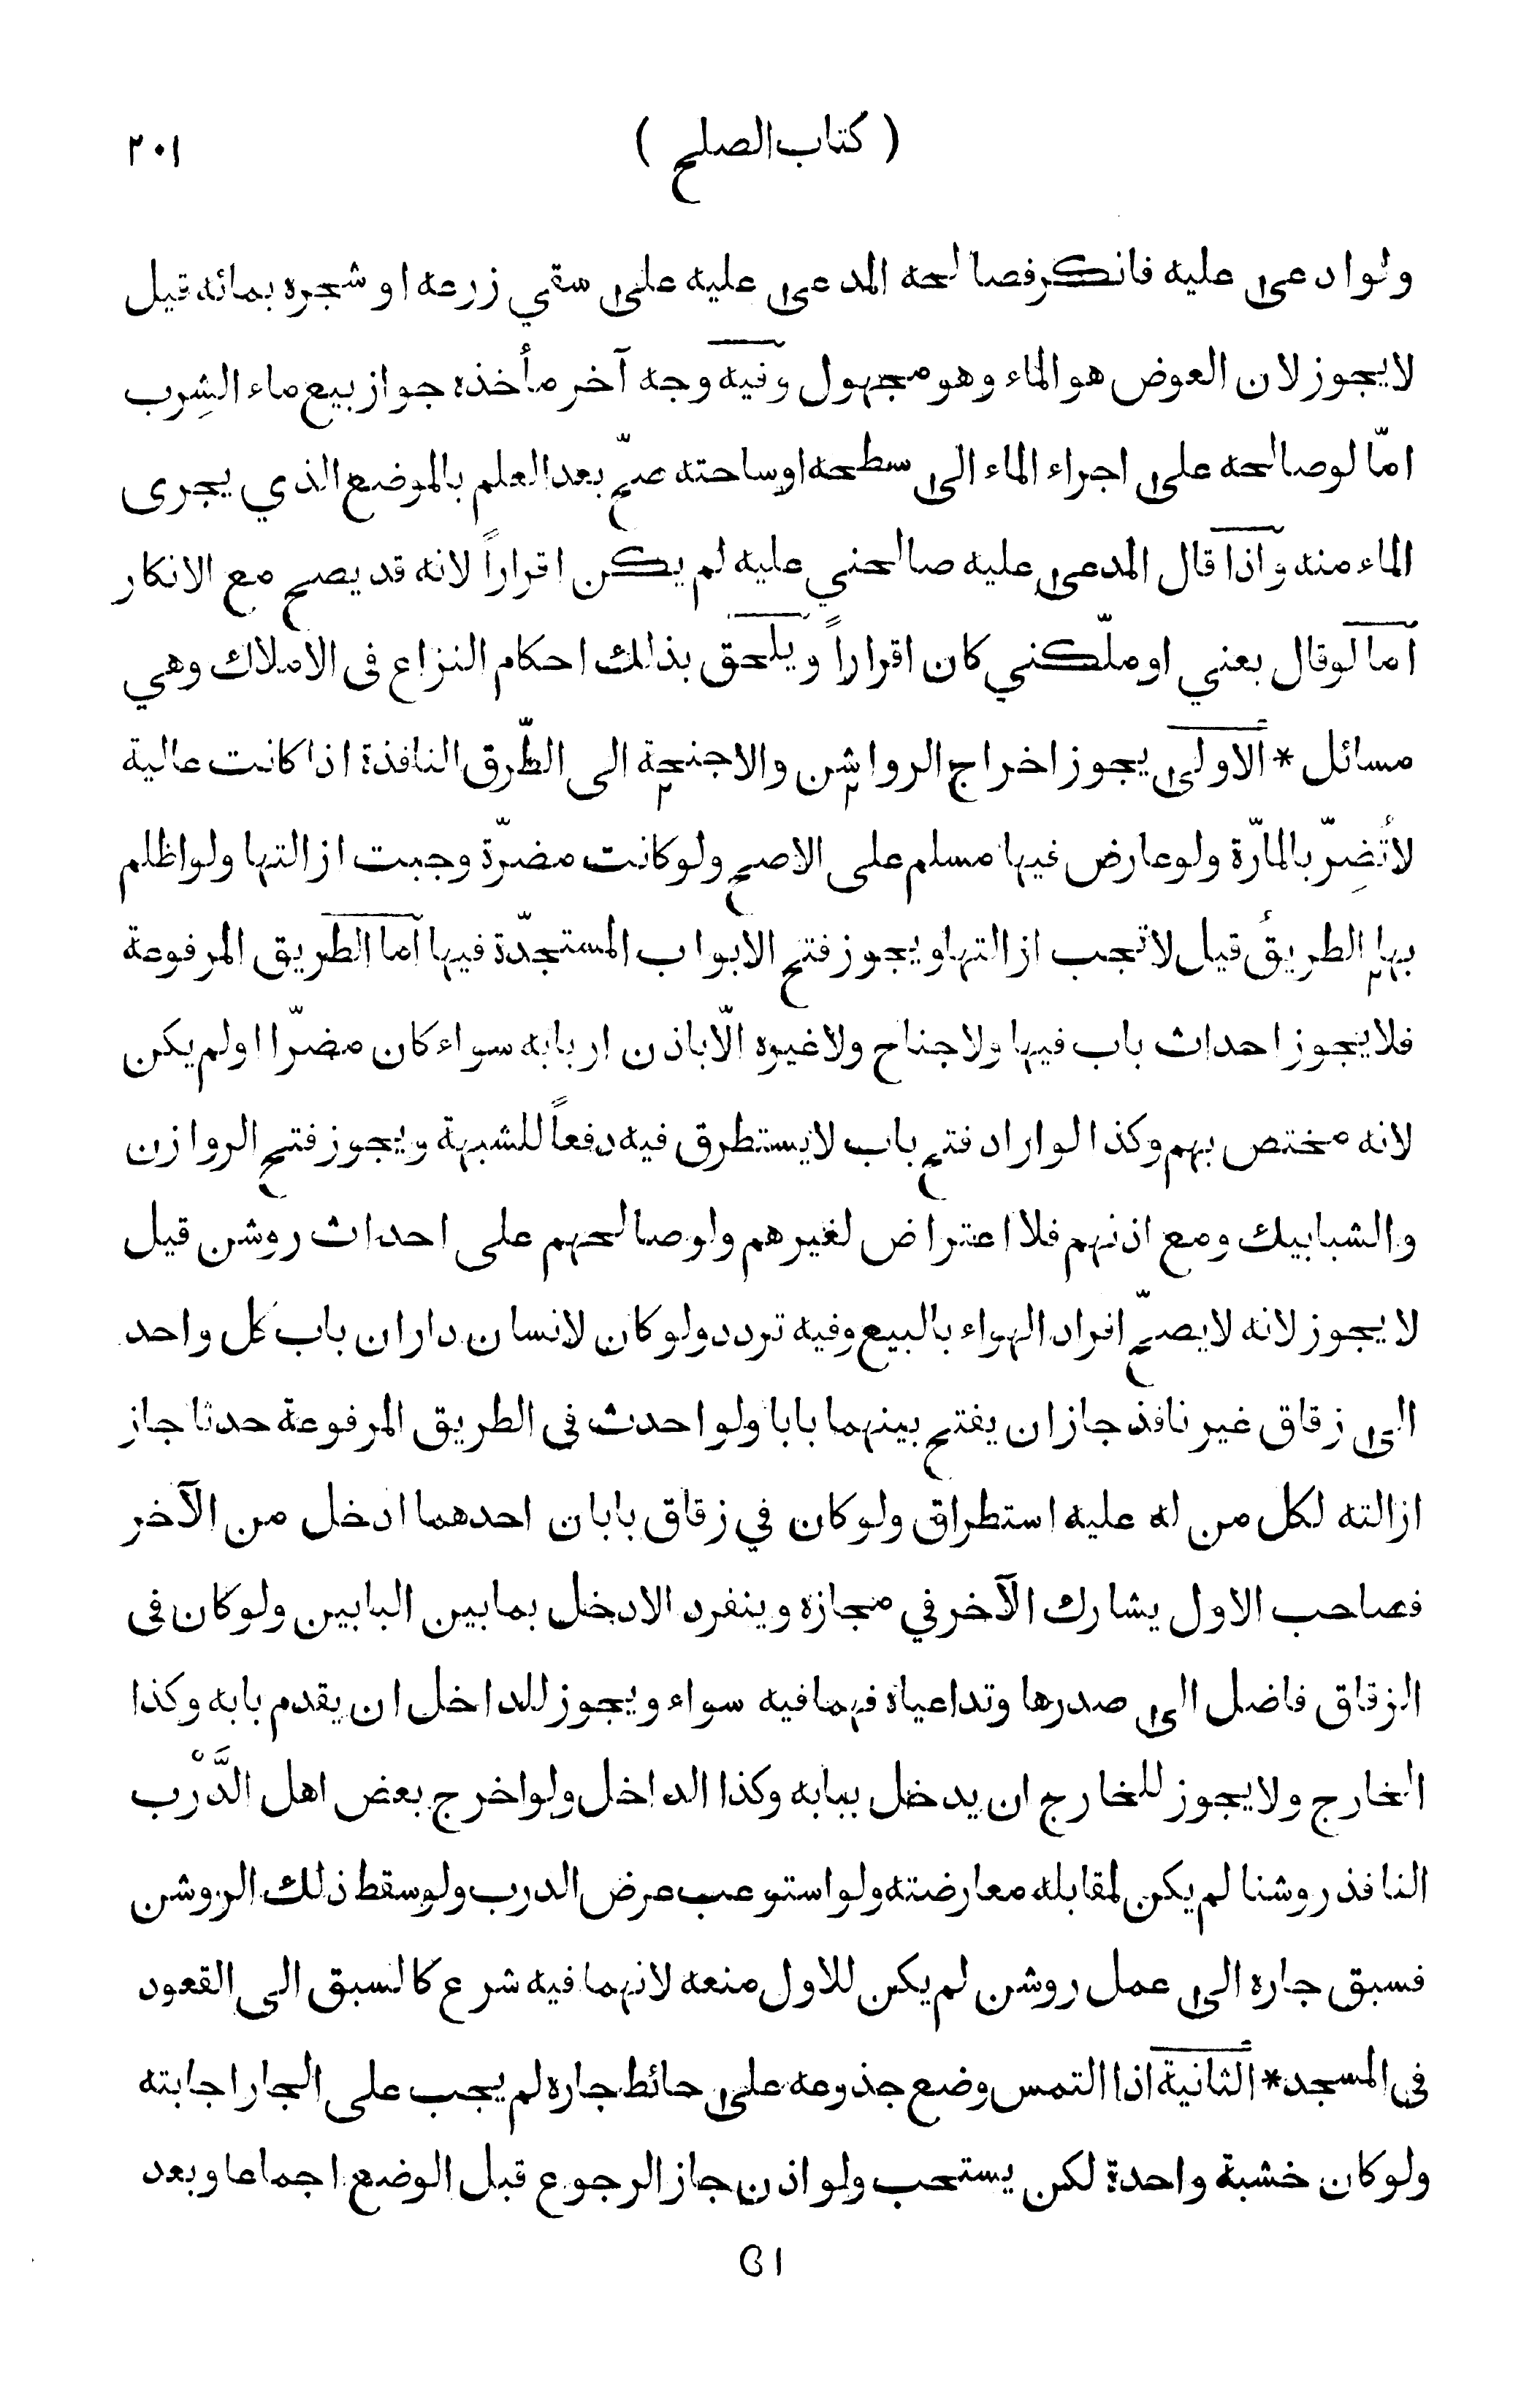 ( كتاب الصلح ) ٢٠١
ولو ادعى عليه فانكر فصالحه المدعى عليه على سقي زرعه او شجره بمائه قيل
لا يجوز لان العوض هو الماء وهو مجهول وفيه وجه آخر مأخذه جواز بيع ماء الشِرب
امّا لو صالحه على اجراء الماء الى سطحه او ساحته صحّ بعد العلم بالموضع الذي يجرى
الماء منه واذا قال المدعى عليه صالحني عليه لم يكن اقراراً لانه قد يصح مع الانكار
اما لو قال بعني او ملّكني كان اقراراً ويلحق بذالك احكام النزاع فى الاملاك وهي
مسائل * الاولى يجوز اخراج الرواشن والاجنحة الى الطّرق النافذة اذا كانت عالية
لا تُضِرّ بالمارّة ولو عارض فيها مسلم على الاصح ولو كانت مضرّة وجبت ازالتها ولو اظلم
بها الطريقُ قيل لا تجب ازالتها ويجوز فتح الابواب المستجدّة فيها اما الطريق المرفوعة
فلا يجوز احداث باب فيها ولا جناح ولا غيره الّا باذن اربابه سواء كان مضرّا او لم يكن
لانه مختص بهم وكذا لو اراد فتح باب لا يستطرق فيه دفعاً للشبهة ويجوز فتح الروازن
والشبابيك ومع اذنهم فلا اعتراض لغيرهم ولو صالحهم على احداث روشن قيل
لا يجوز لانه لا يصحّ افراد الهواء بالبيع وفيه تردد ولو كان لانسان داران باب كل واحد
الى زقاق غير نافذ جاز ان يفتح بينهما بابا ولو احدث فى الطريق المرفوعة حدثا جاز
ازالته لكل من له عليه استطراق ولو كان في زقاق بابان احدهما ادخل من الآخر
فصاحب الاول يشارك الآخر في مجازه وينفرد الادخل بما بين البابين ولو كان فى
الزقاق فاضل الى صدرها وتداعياه فهما فيه سواء ويجوز للداخل ان يقدم بابه وكذا
الخارج ولا يجوز للخارج ان يدخل ببابه وكذا الداخل ولو اخرج بعض اهل الدَّرْب
النافذ روشنا لم يكن لمقابله معارضته ولو استوعب عرض الدرب ولو سقط ذلك الروشن
فسبق جاره الى عمل روشن لم يكن للاول منعه لانهما فيه شرع كالسبق الى القعود
فى المسجد * الثانية اذا التمس وضع جذوعه على حائط جاره لم يجب على الجار اجابته
ولو كان خشبة واحدة لكن يستحب ولو اذن جاز الرجوع قبل الوضع اجماعا وبعد